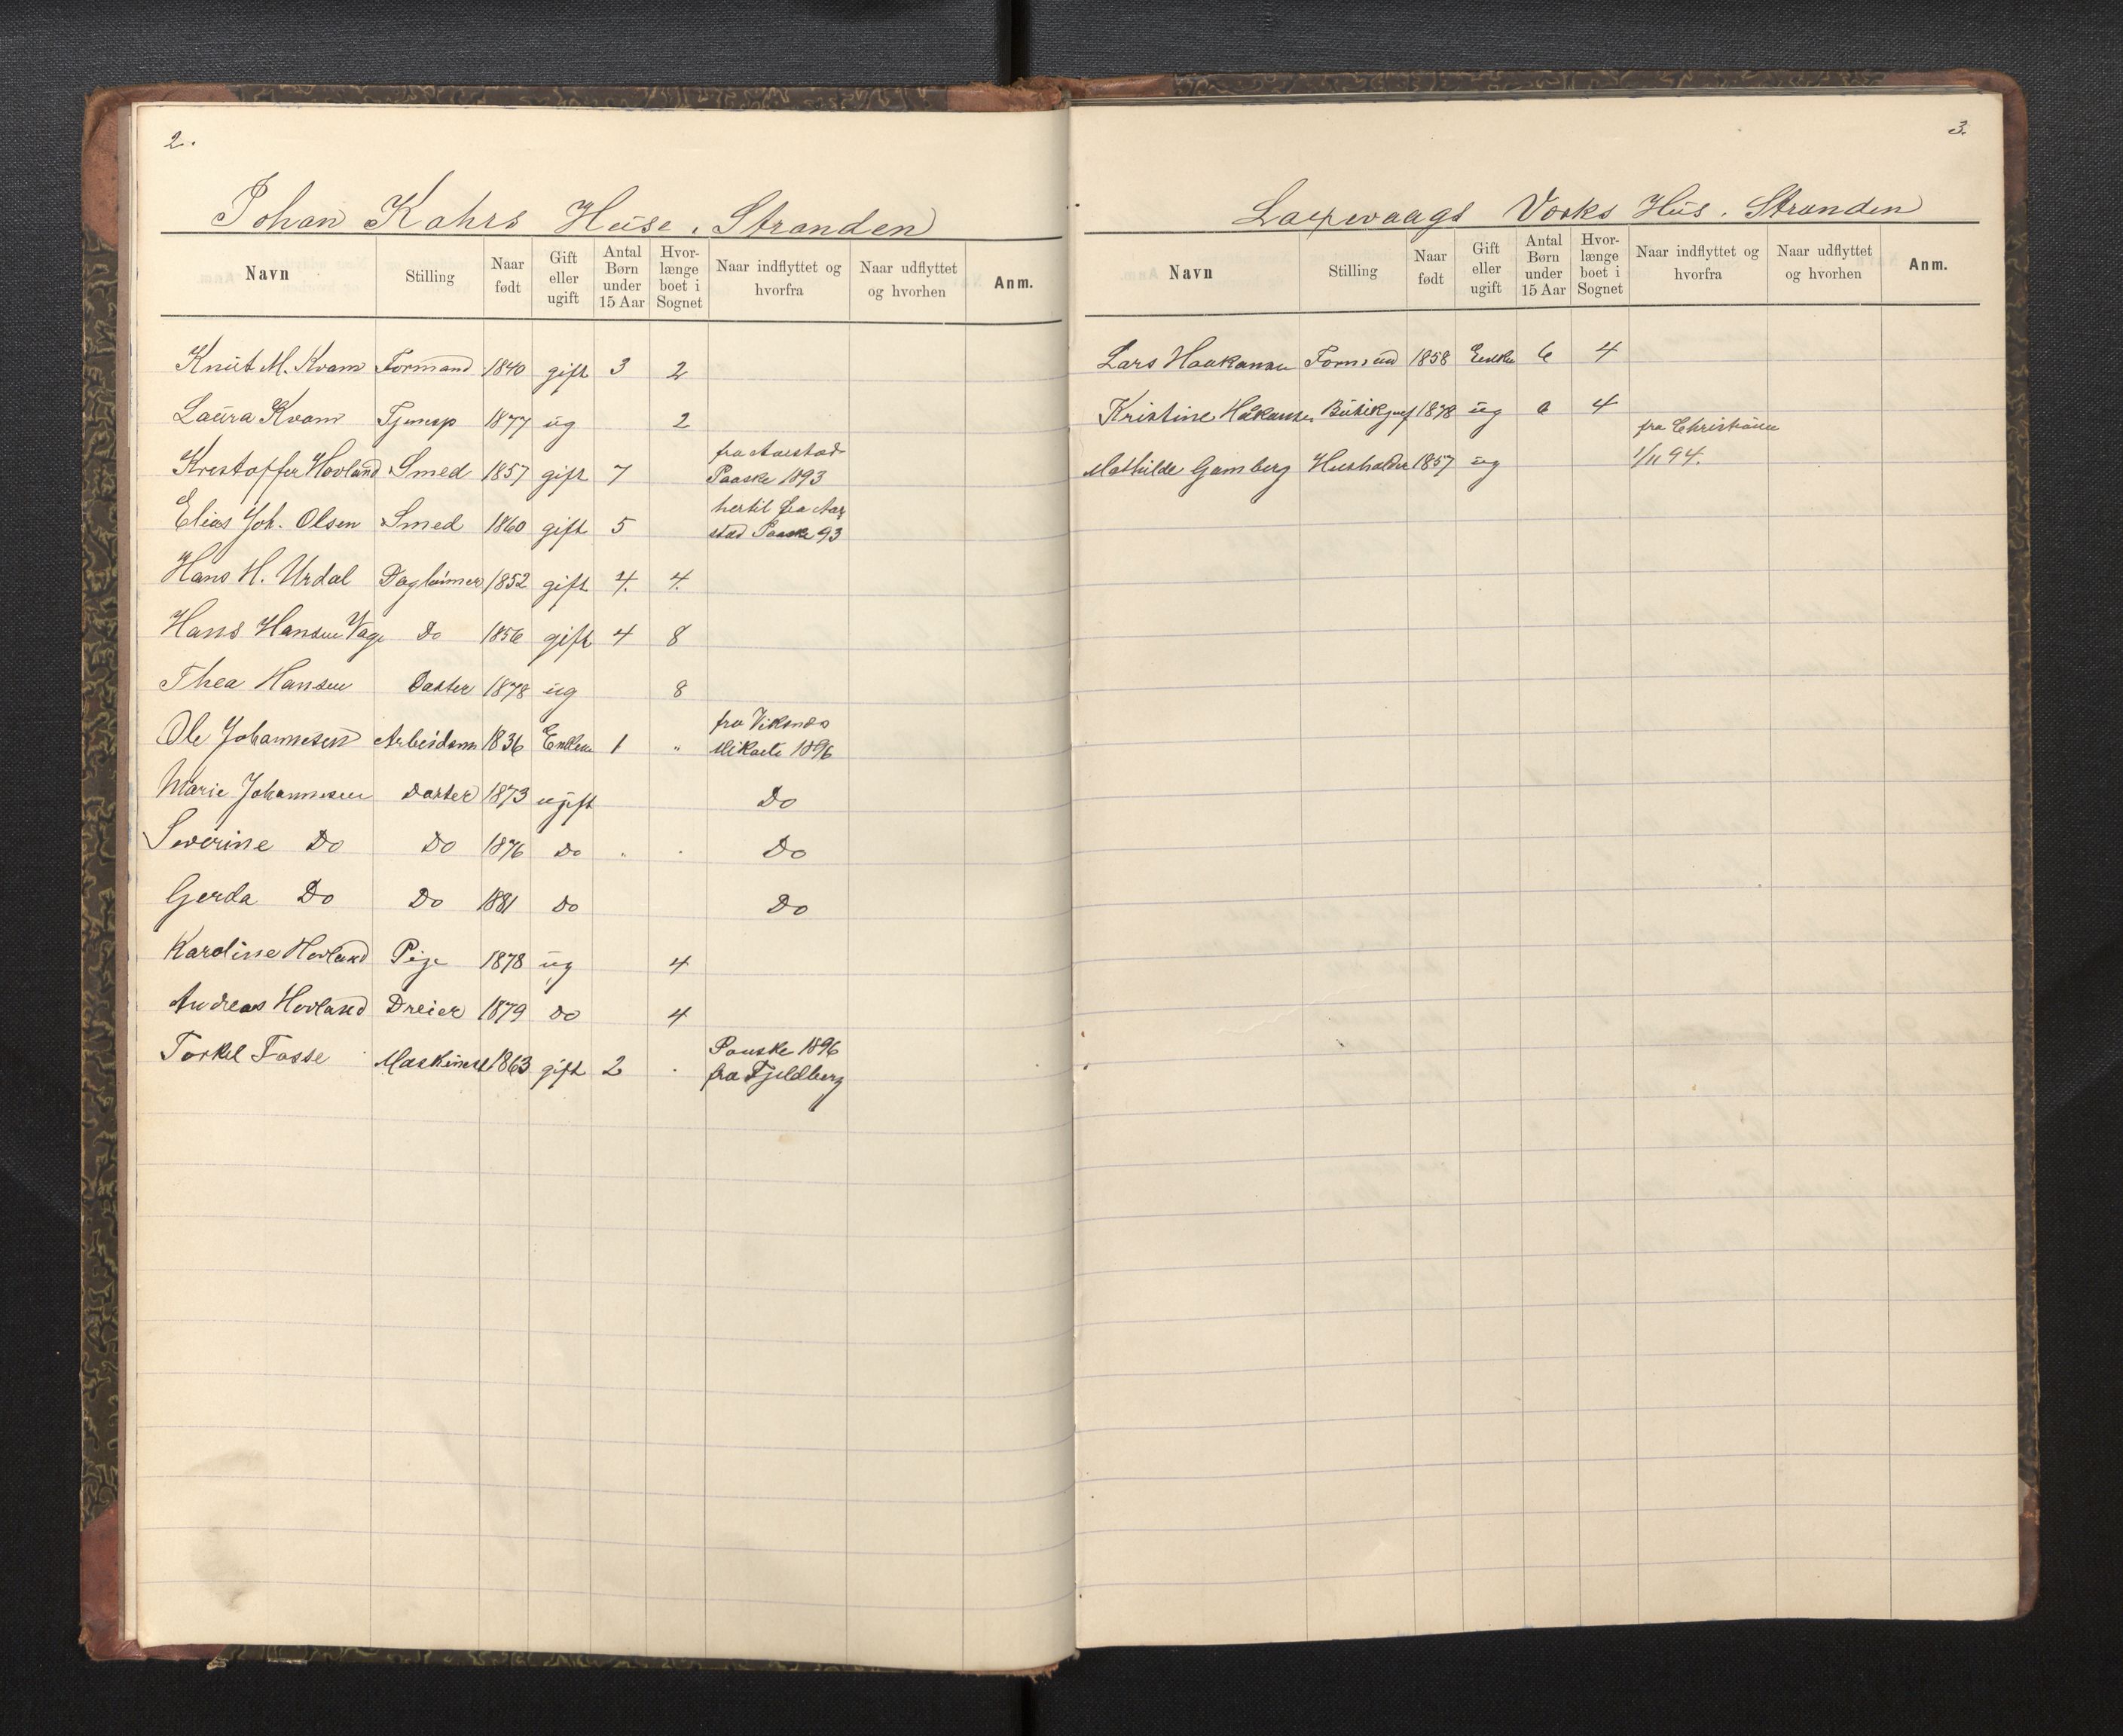 2.
Johan Kahrs Huse. Stranden
Navn Stilling Naar født Gift eller ugift Antal Børn under 15 Aar Hvorlænge boet i Sognet Naar indflyttet og hvorfra Naar udflyttet og hvorhen Anm.
Knut M. Kvam Formand 1840 gift 3 2
Laura Kvam Tjenesp 1877 ug 2
fra Aarstad
Krestoffer Hovland Smed 1857 gift 7 Paaske 1893
hertil fra Aar
Elias Joh. Olsen Smed 1860 gift 5 stad Paaske 93
Hans H. Urdal Dagløinner 1852 gift 4. 4.
Hans Hansen Vage Do 1856 gift 4 8
Thea Hansen Datter 1878 ug 8
fra Viksnæs
Ole Johannesen Arbeidsm 1836 Enkem 1 " Mikaeli 1896
Marie Johannesen Datter 1873 ugift Do
Severine Do Do 1876 Do " . Do
Gerda Do Do 1881 Do Do
Karoline Hovland Pige 1878 ug 4
Andreas Hovland Dreier 1879 Do 4
Paaske 1896
Torkel Fosse Maskinist 1863 gift 2 . fra Fjeldberg
3.
Laxevaags Værks Hus. Stranden
Navn Stilling Naar født Gift eller ugift Antal Børn under 15 Aar Hvorlænge boet i Sognet Naar indflyttet og hvorfra Naar udflyttet og hvorhen Anm.
Lars Haakansen Formand 1858 Enke 6 4
Kristine Håkansen 1878 ug 4
fra Christiania
Mathilde Gamberg Husholder 1857 ug 1/11 94.